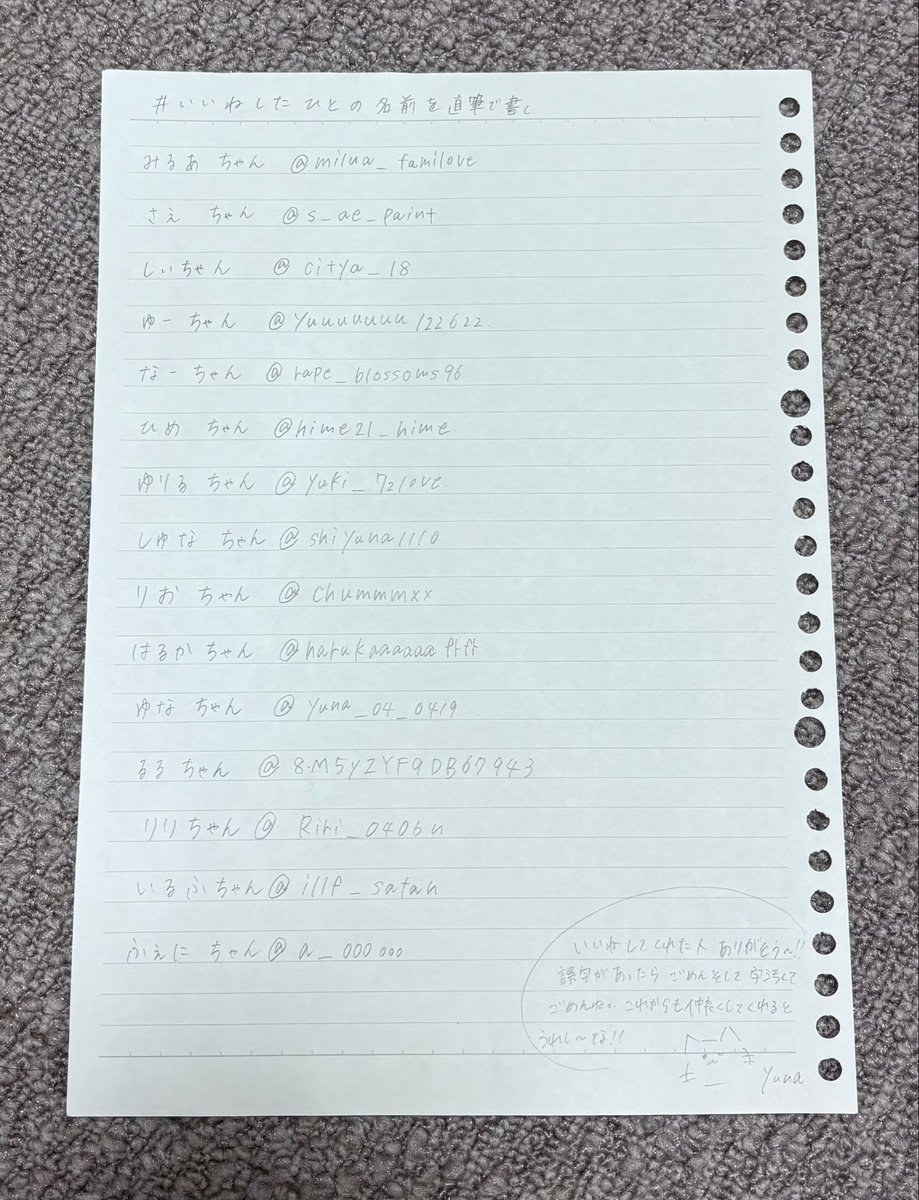 #いいねしたひとの名前を直筆で書く
みるあちゃん @milua_familove
さえちゃん @s_ae_paint
しいちゃん @citya_18
ゆーちゃん @yuuuuuuu122622
なーちゃん @rape_blossoms96
ひめちゃん @hime21_hime
ゆりるちゃん @yuki_72love
しゅなちゃん @shiyuna1110
りおちゃん @chummmxx
はるかちゃん @harukaaaaaa
ゆなちゃん @yuna_04_0419
るるちゃん @8M5yZYF9DB67943
りりちゃん @Riri_0406u
いるふちゃん @illf_satan
ふぇにちゃん @a_000000
いいねしてくれた人ありがとう〜!!
誤字があったらごめんそして字汚くて
ごめんね。これからも仲良くしてくれると
うれし〜な!!
Yuna